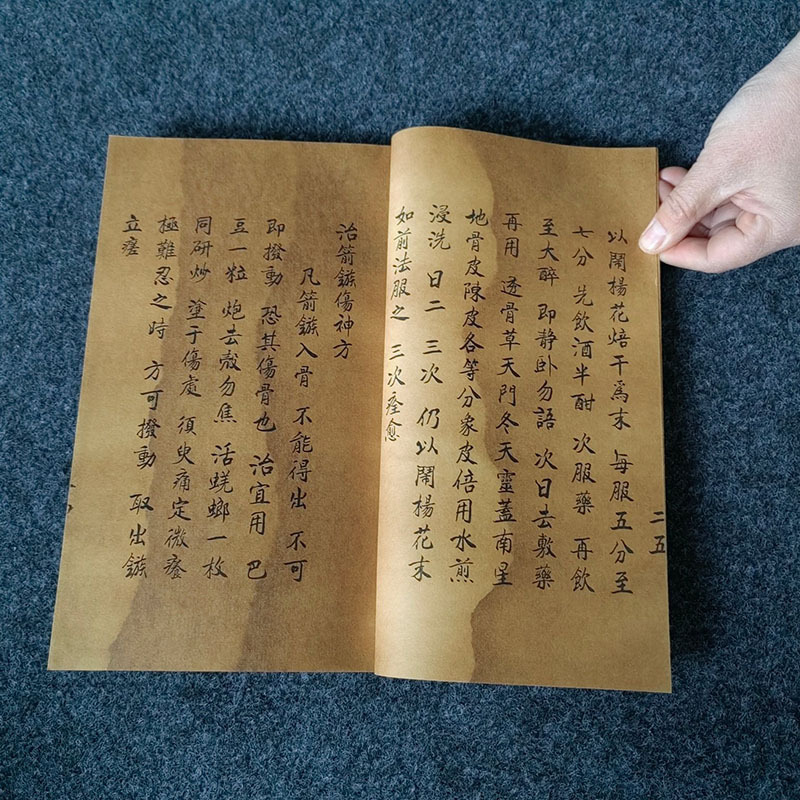 以鬧楊花焙干爲末 每服五分至
七分 先飲酒半酣 次服藥 再飲
至大醉 即静卧勿語 次日去敷藥
再用 透骨草天門冬天靈蓋南星
地骨皮陳皮各等分象皮倍用水煎
浸洗 日二 三次 仍以鬧楊花末
如前法服之 三次痊愈
二五
治箭鏃傷神方
凡箭鏃入骨 不能得出 不可
即撥動 恐其傷骨也 治宜用 巴
豆一粒 炮去殼勿焦 活蜣螂一枚
同研炒 塗于傷處 須臾痛定微癢
極難忍之時 方可撥動 取出鏃
立瘥